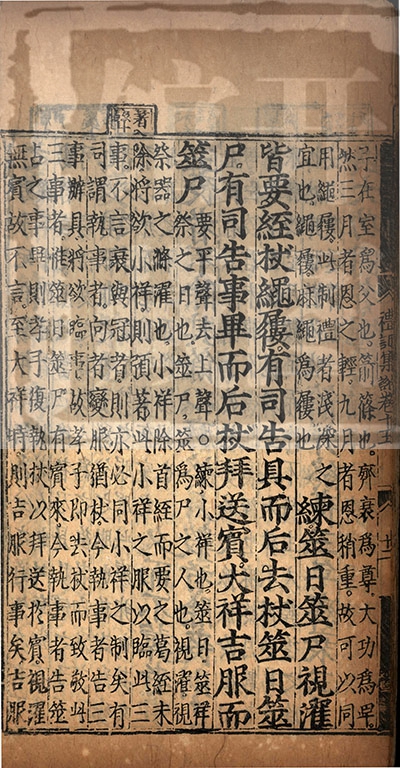 子在室爲父也。箭篠也。齊衰爲尊大功爲卑
然三月者恩之輕九月者恩稍重。故可以同
用繩屨。此制禮者淺深之
宜也。繩屨麻繩爲屨也
練筮日筮尸視濯
皆要絰杖繩屨。有司告具而后去杖筮日筮
尸。有司告事畢而后杖拜送賓。大祥吉服而
筮尸
要平聲去上聲。○練小祥也。筮日筮祥
祭之日也。筮尸筮爲尸之人也。視濯視
祭器之滌濯也。小祥除首絰而要之葛絰未
除。將欲小祥。則預著此小祥之服以臨此三
事。不言衰與冠者。則亦必同小祥之制矣。有
司謂執事者。向者變服猶杖。今執事者告三
事辦具。將欲臨事。故孝子即去杖而致敬。此
三事者。惟筮日筮尸有賓來。今執事者告筮
占之事畢。則孝子復執杖以拜送於賓。視濯
無賓。故不言。至大祥時。則吉服行事矣。吉服
禮記集說卷十五
著